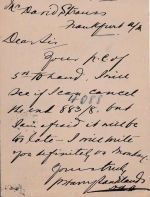 Mr David Strauss
Frankfurt a/M
Dear Sir
Your p.c. of
5th to hand. I will
see if I can cancel
the no 883/8. but
I am afraid it will be
too late – I will write
you definitely on Monday.
Yours truly